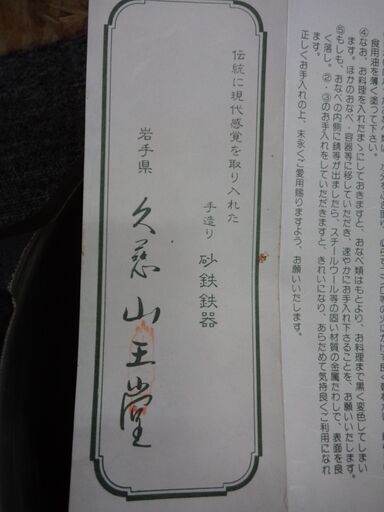 食用油を薄く塗って下さい。
④なお、お料理を入れたまゝにしておきますと、おなべ類はもとより、お料理まで黒く変色してしまい
ます。ほかのおなべ・容器等に移していただき、速やかにお手入れ下さることを、お願いいたします。
⑤もしも、おなべの内側に錆等が出ましたら、スチールウール等の固い材質の金属たわしで、表面を良
く落し。②・③のお手入れをしていただきますと、きれいになり、あらためて気持良くご利用になれ
ます。
正しくお手入れの上、末永くご愛用賜りますよう、お願いいたします。
伝統に現代感覚を取り入れた
手造り 砂鉄鉄器
岩手県 久慈山王堂